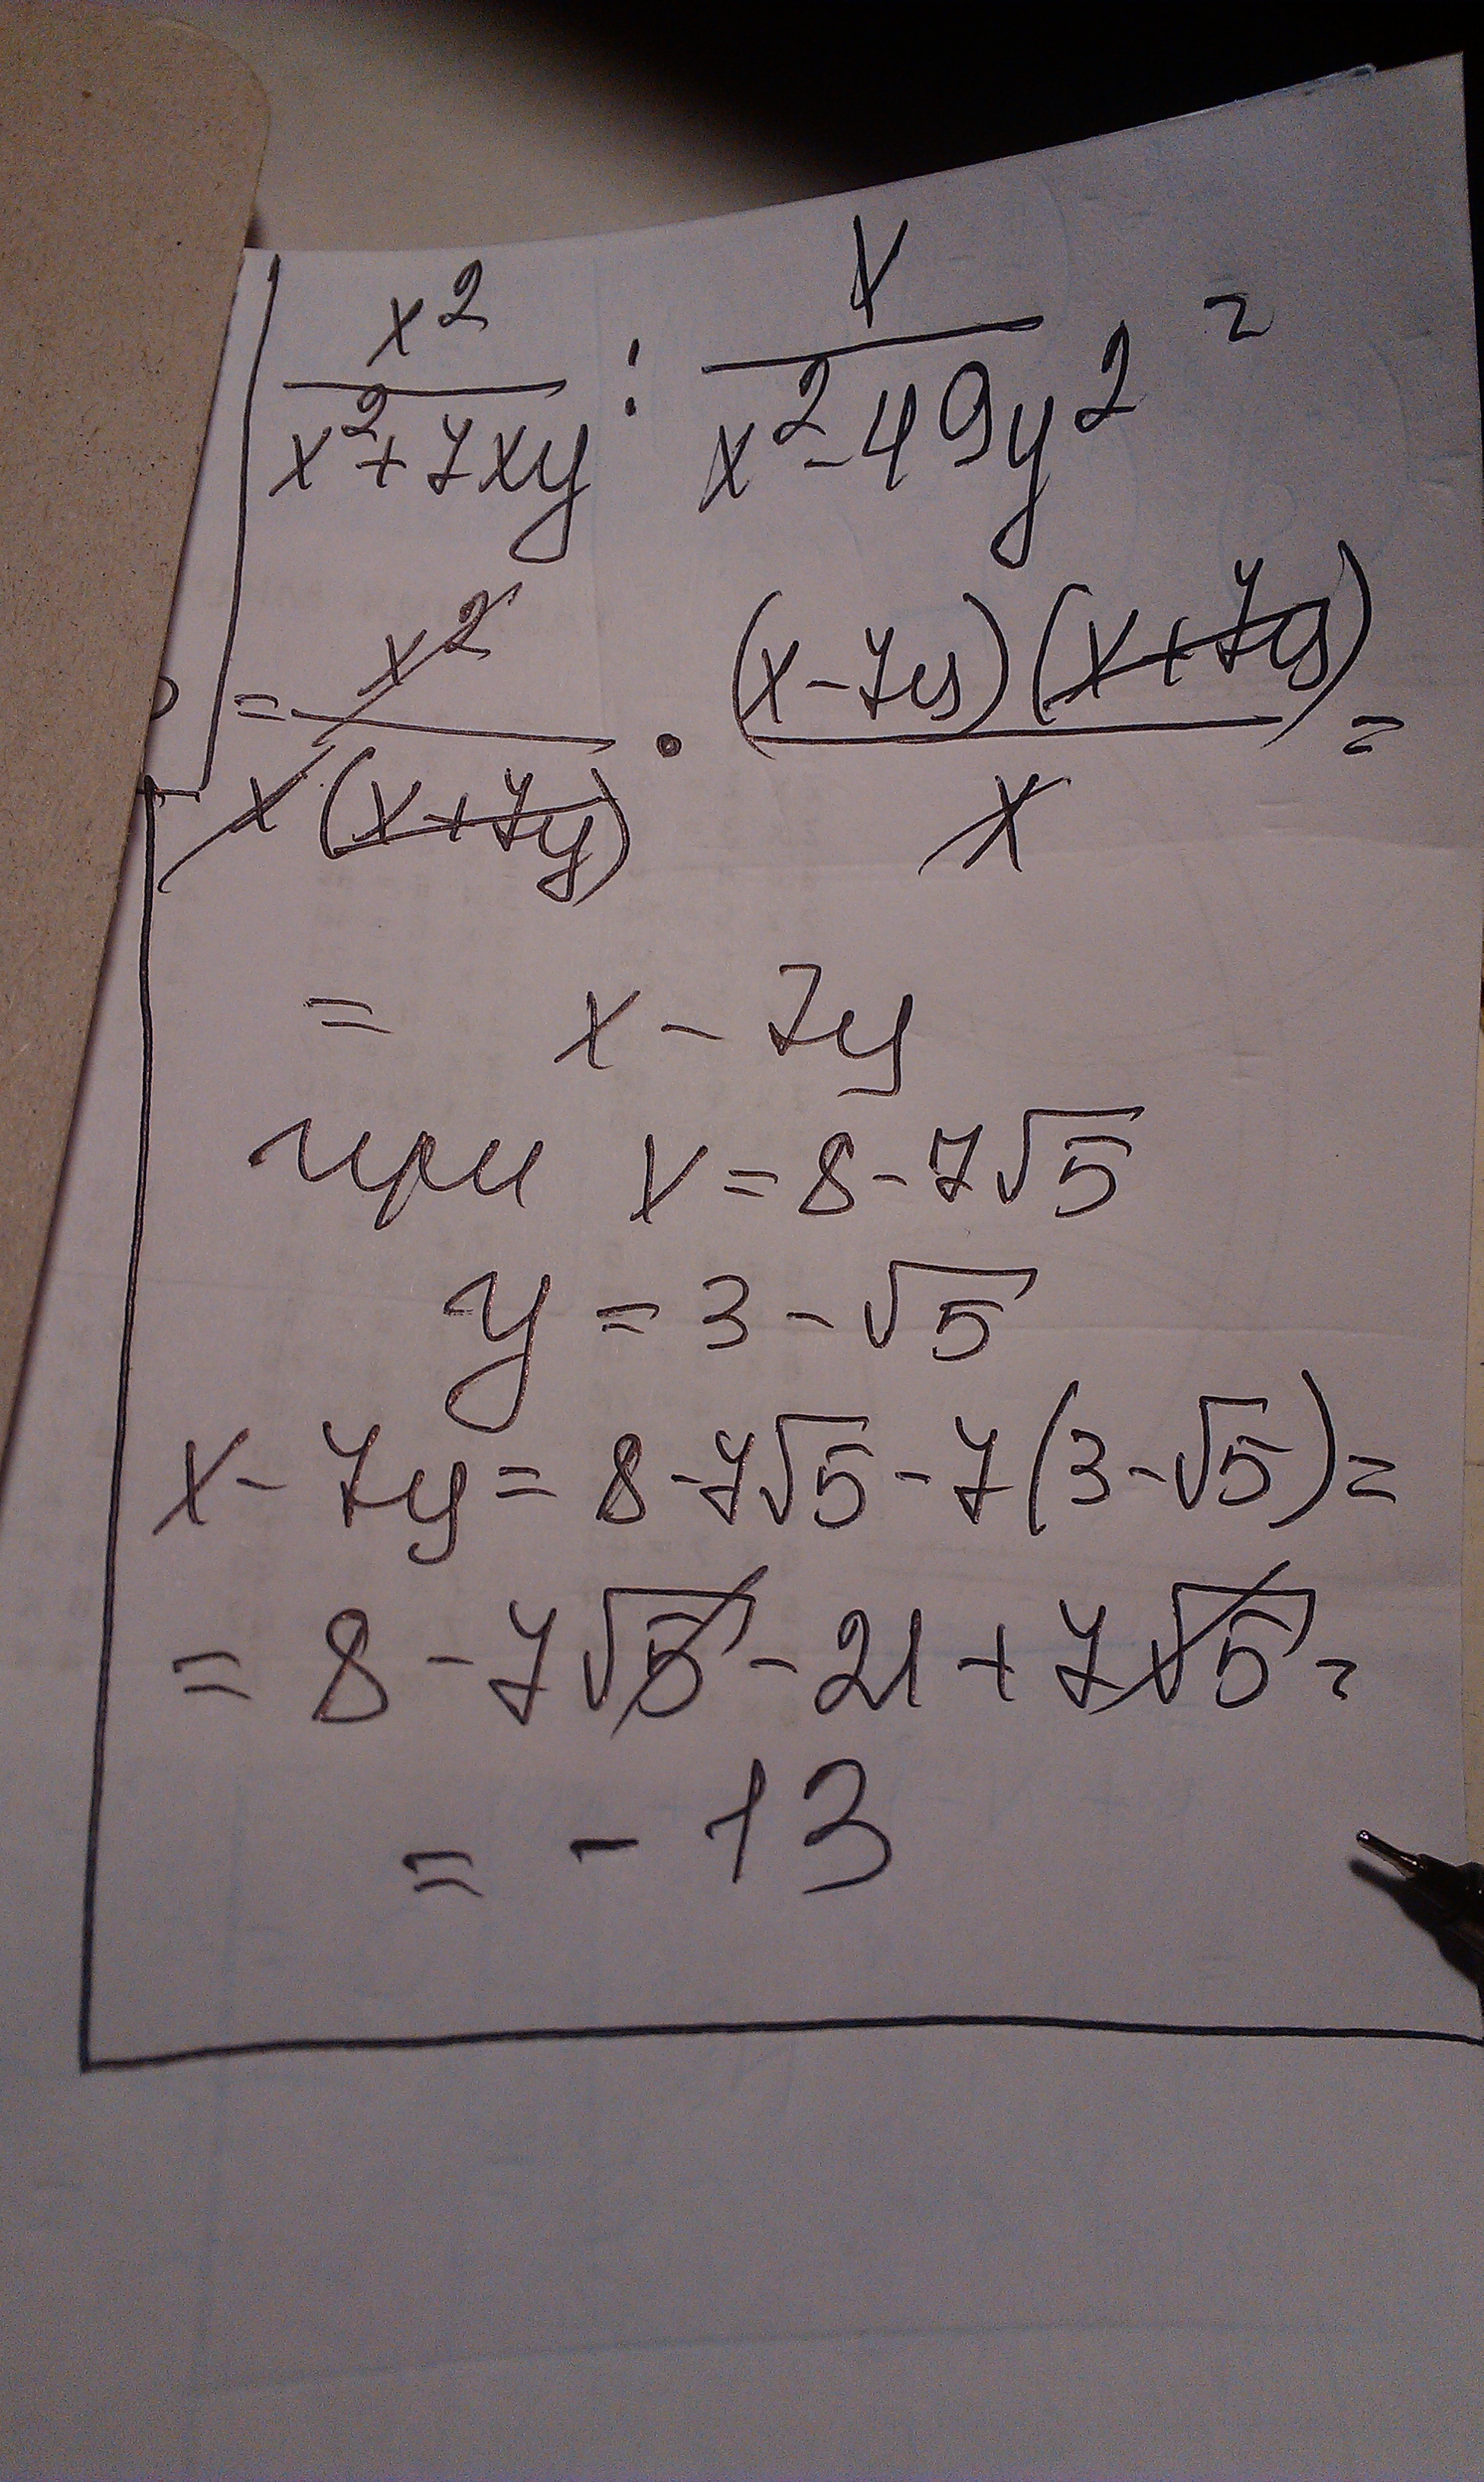 x²/(x²+7xy) : x/(x²-49y²) =
= x²/(x(x+7y)) · (x-7y)(x+7y)/x =
= x - 7y
при x = 8 - 7√5
y = 3 - √5
x - 7y = 8 - 7√5 - 7(3 - √5) =
= 8 - 7√5 - 21 + 7√5 =
= - 13